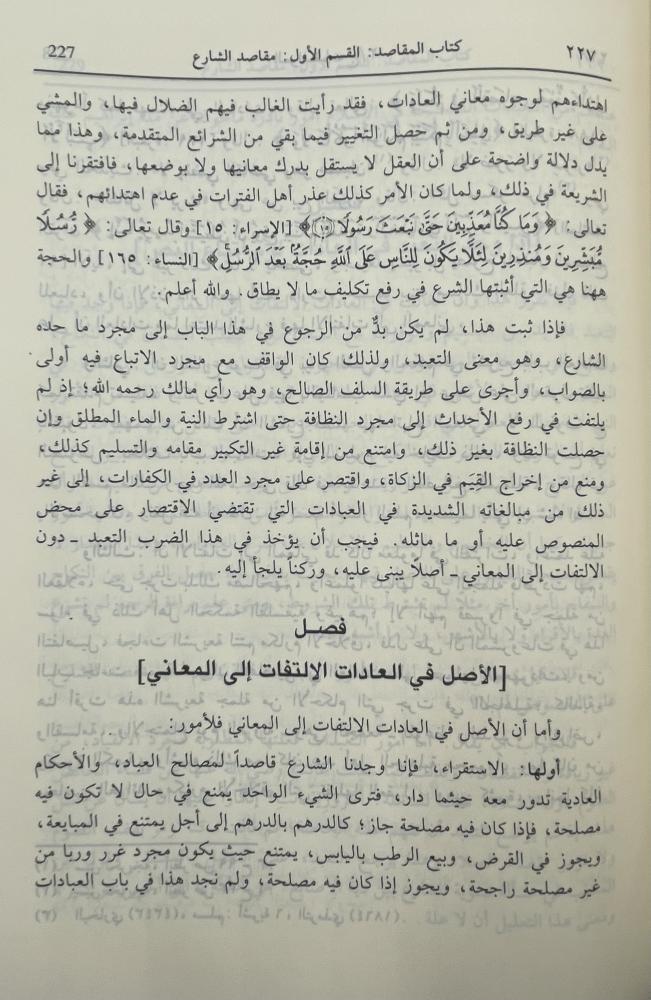 ٢٢٧ كتاب المقاصد: القسم الأول: مقاصد الشارع 227
اهتداءهم لوجوه معاني العادات، فقد رأيت الغالب فيهم الضلال فيها، والمشي
على غير طريق، ومن ثم حصل التغيير فيما بقي من الشرائع المتقدمة، وهذا مما
يدل دلالة واضحة على أن العقل لا يستقل بدرك معانيها ولا بوضعها، فافتقرنا إلى
الشريعة في ذلك، ولما كان الأمر كذلك عذر أهل الفترات في عدم اهتدائهم، فقال
تعالى: ﴿وَمَا كُنَّا مُعَذِّبِينَ حَتَّىٰ نَبْعَثَ رَسُولًا ١٥﴾ [الإسراء: ١٥] وقال تعالى: ﴿رُّسُلًا
مُّبَشِّرِينَ وَمُنذِرِينَ لِئَلَّا يَكُونَ لِلنَّاسِ عَلَى ٱللَّهِ حُجَّةٌۢ بَعْدَ ٱلرُّسُلِۚ﴾ [النساء: ١٦٥] والحجة
ههنا هي التي أثبتها الشرع في رفع تكليف ما لا يطاق. والله أعلم.
فإذا ثبت هذا، لم يكن بدٌّ من الرجوع في هذا الباب إلى مجرد ما حده
الشارع، وهو معنى التعبد، ولذلك كان الواقف مع مجرد الاتباع فيه أولى
بالصواب، وأجرى على طريقة السلف الصالح، وهو رأي مالك رحمه الله؛ إذ لم
يلتفت في رفع الأحداث إلى مجرد النظافة حتى اشترط النية والماء المطلق وإن
حصلت النظافة بغير ذلك، وامتنع من إقامة غير التكبير مقامه والتسليم كذلك،
ومنع من إخراج القِيَم في الزكاة، واقتصر على مجرد العدد في الكفارات، إلى غير
ذلك من مبالغاته الشديدة في العبادات التي تقتضي الاقتصار على محض
المنصوص عليه أو ما ماثله. فيجب أن يؤخذ في هذا الضرب التعبد ـ دون
الالتفات إلى المعاني ـ أصلاً يبنى عليه، وركناً يلجأ إليه.
فصل
[الأصل في العادات الالتفات إلى المعاني]
وأما أن الأصل في العادات الالتفات إلى المعاني فلأمور:
أولها: الاستقراء، فإنا وجدنا الشارع قاصداً لمصالح العباد، والأحكام
العادية تدور معه حيثما دار، فترى الشيء الواحد يمنع في حال لا تكون فيه
مصلحة، فإذا كان فيه مصلحة جاز؛ كالدرهم بالدرهم إلى أجل يمتنع في المبايعة،
ويجوز في القرض، وبيع الرطب باليابس، يمتنع حيث يكون مجرد غرر وربا من
غير مصلحة راجحة، ويجوز إذا كان فيه مصلحة، ولم نجد هذا في باب العبادات